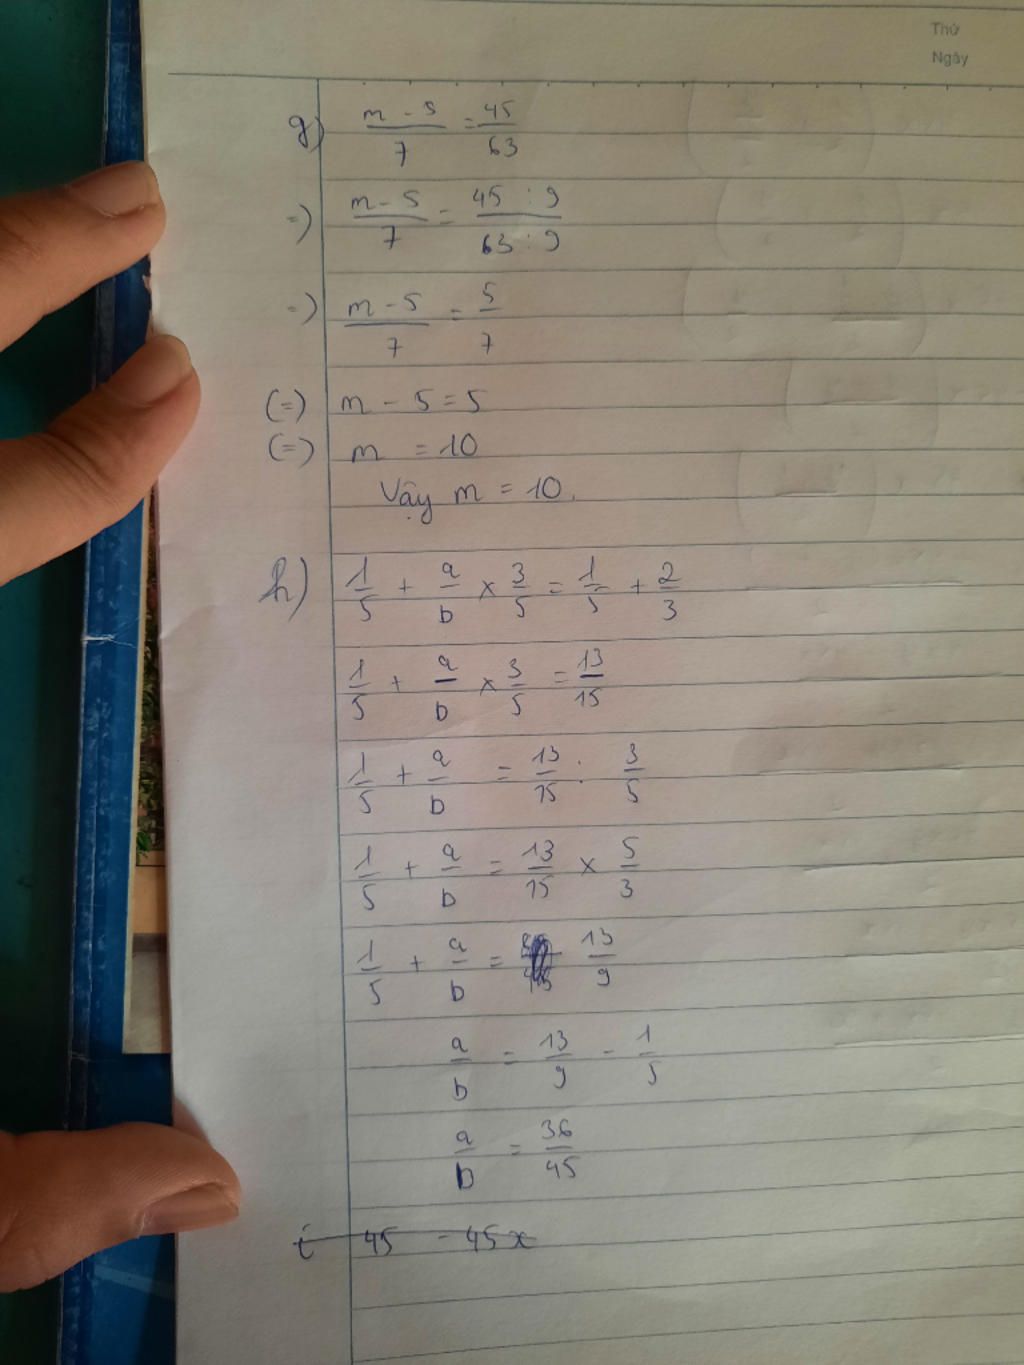 Thứ
Ngày
g) m - 5 / 7 = 45 / 63
=) m - 5 / 7 = 45 : 9 / 63 : 9
=) m - 5 / 7 = 5 / 7
(=) m - 5 = 5
(=) m = 10
Vậy m = 10.
h) 1/5 + a/b × 3/5 = 1/5 + 2/3
1/5 + a/b × 3/5 = 13/15
1/5 + a/b = 13/15 : 3/5
1/5 + a/b = 13/15 × 5/3
1/5 + a/b = 13/9
a/b = 13/9 - 1/5
a/b = 36/45
i 45 - 45x